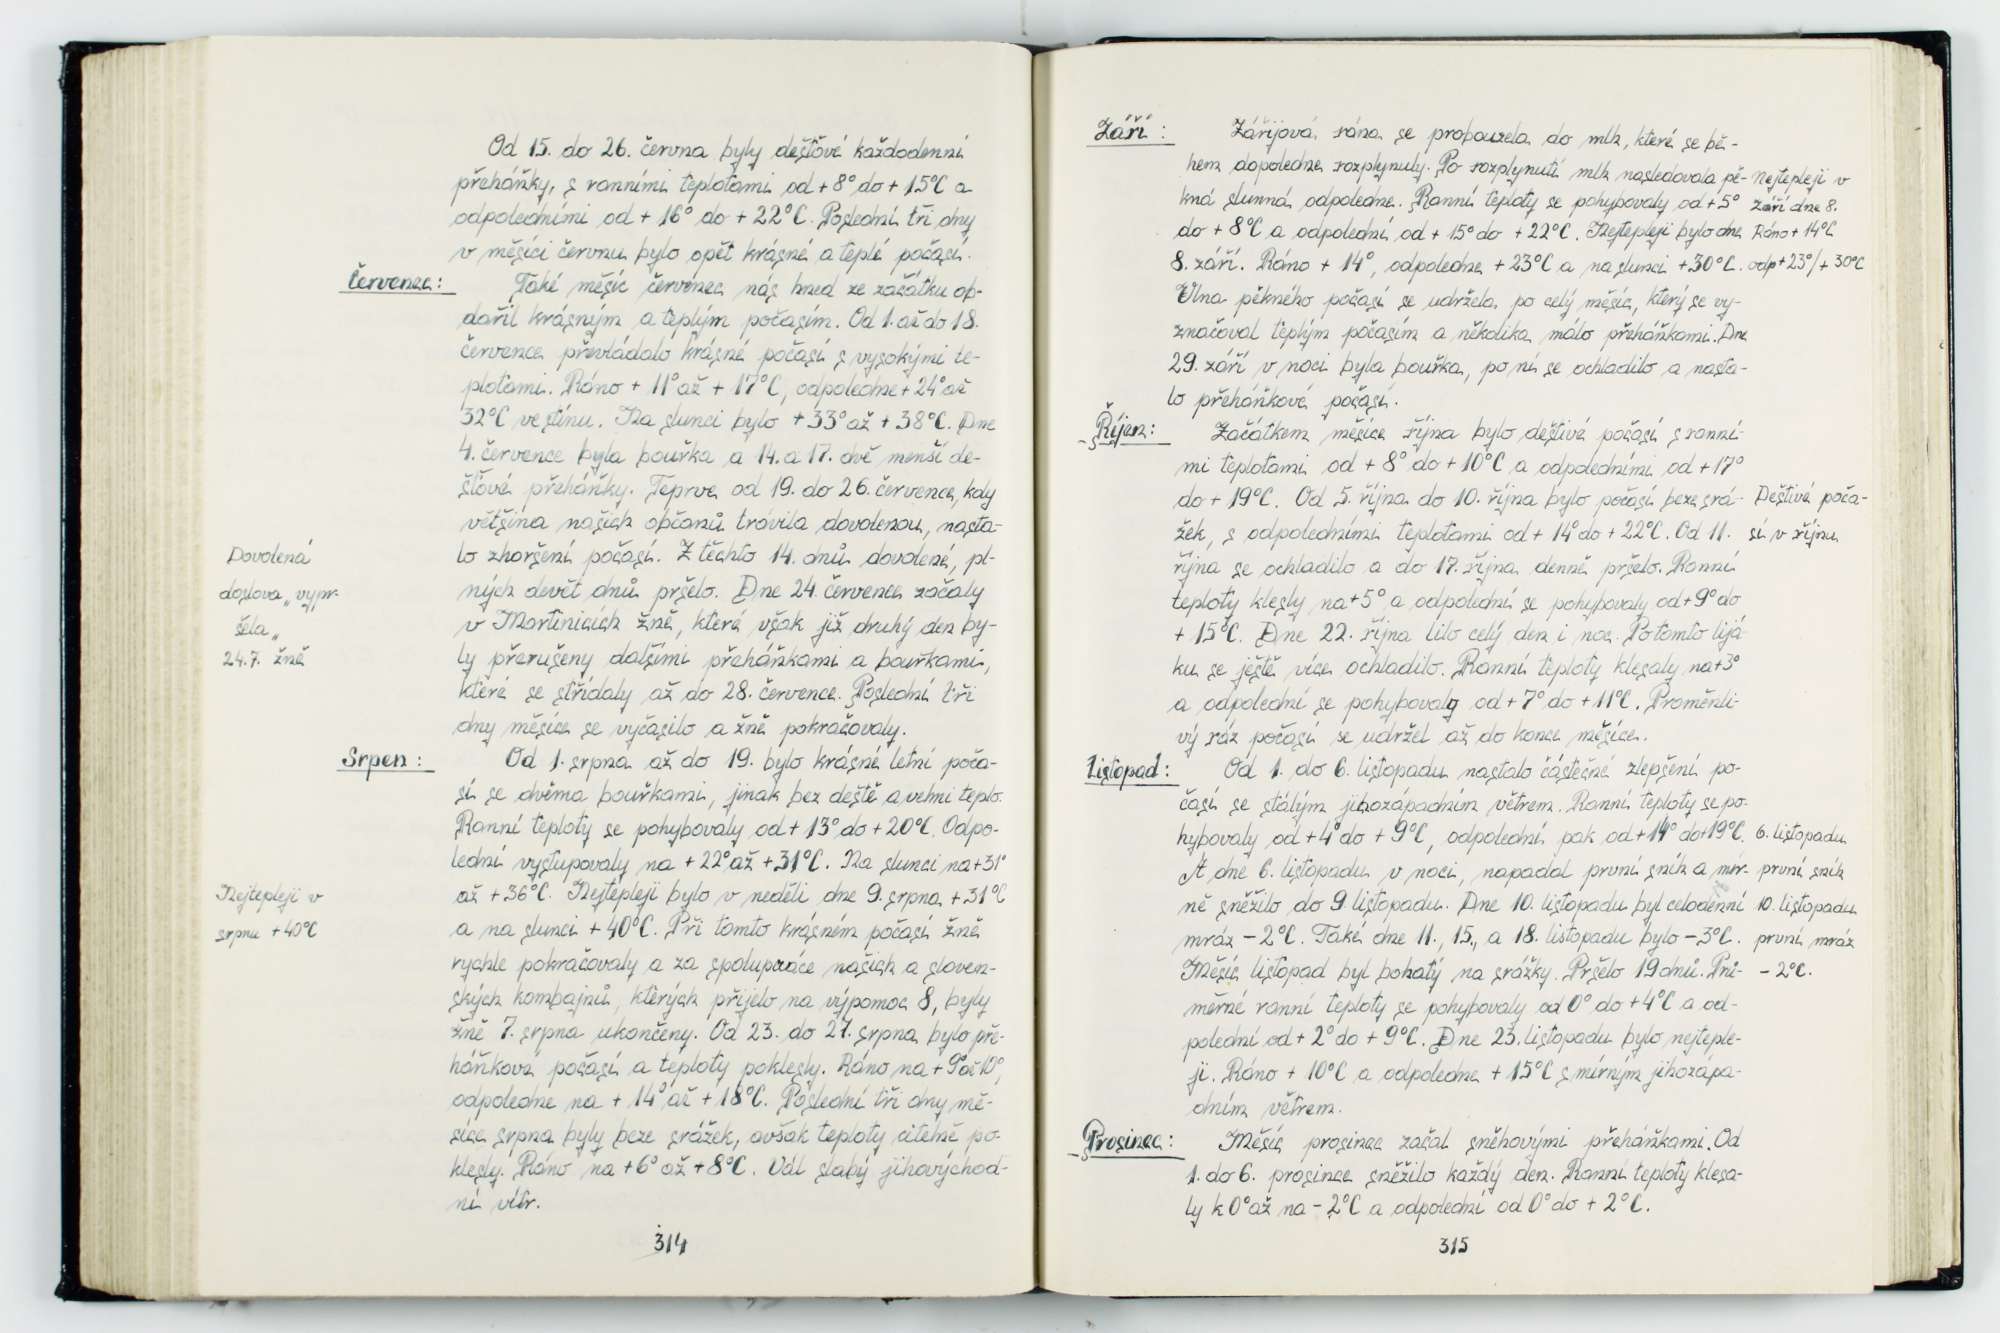 Od 15. do 26. června byly dešťové každodenní
přeháňky, s ranními teplotami od + 8° do + 15°C a
odpoledními od + 16° do + 22°C. Poslední tři dny
v měsíci červnu bylo opět krásné a teplé počasí.
Červenec:
Také měsíc červenec nás hned ze začátku ob-
dařil krásným a teplým počasím. Od 1. až do 18.
července převládalo krásné počasí s vysokými te-
plotami. Ráno + 11° až + 17°C, odpoledne + 24° až
32°C ve stínu. Na slunci bylo + 33° až + 38°C. Dne
4. července byla bouřka a 14. a 17. dvě menší de-
šťové přeháňky. Teprve od 19. do 26. července, kdy
většina našich občanů trávila dovolenou, nasta-
lo zhoršení počasí. Z těchto 14. dnů dovolené, pl-
ných devět dnů pršelo. Dne 24. července začaly
v Martinicích žně, které však již druhý den by-
ly přerušeny dalšími přeháňkami a bouřkami,
které se střídaly až do 28. července. Poslední tři
dny měsíce se vyčasilo a žně pokračovaly.
Dovolená
doslova „vypr-
šela„
24.7. žně
Srpen:
Od 1. srpna až do 19. bylo krásné letní poča-
sí se dvěma bouřkami, jinak bez deště a velmi teplo.
Ranní teploty se pohybovaly od + 13° do + 20°C. Odpo-
lední vystupovaly na + 22° až + 31°C. Na slunci na + 31°
až + 36°C. Nejtepleji bylo v neděli dne 9. srpna + 31°C
a na slunci + 40°C. Při tomto krásném počasí žně
rychle pokračovaly a za spolupráce našich a sloven-
ských kombajnů, kterých přijelo na výpomoc 8, byly
žně 7. srpna ukončeny. Od 23. do 27. srpna bylo pře-
háňkové počasí a teploty poklesly. Ráno na + 9° až 10°,
odpoledne na + 14° až + 18°C. Poslední tři dny mě-
síce srpna byly beze srážek, avšak teploty citelně po-
klesly. Ráno na + 6° až + 8°C. Vál slabý jihovýchod-
ní vítr.
Nejtepleji v
srpnu + 40°C
314
Září:
Zářijová rána se probouzela do mlh, které se bě-
hem dopoledne rozplynuly. Po rozplynutí mlh následovala pě-
kná slunná odpoledne. Ranní teploty se pohybovaly od + 5°
do + 8°C a odpolední od + 15° do + 22°C. Nejtepleji bylo dne
8. září. Ráno + 14°, odpoledne + 23°C a na slunci + 30°C.
Vlna pěkného počasí se udržela po celý měsíc, který se vy-
značoval teplým počasím a několika málo přeháňkami. Dne
29. září v noci byla bouřka, po ní se ochladilo a nasta-
lo přeháňkové počasí.
Nejtepleji v
září dne 8.
Ráno + 14°C
odp + 23°/ + 30°C
Říjen:
Začátkem měsíce října bylo deštivé počasí s ranní-
mi teplotami od + 8° do + 10°C a odpoledními od + 17°
do + 19°C. Od 5. října do 10. října bylo počasí beze srá-
žek, s odpoledními teplotami od + 14° do + 22°C. Od 11.
října se ochladilo a do 17. října denně pršelo. Ranní
teploty klesly na + 5° a odpolední se pohybovaly od + 9° do
+ 15°C. Dne 22. října lilo celý den i noc. Po tomto lijá-
ku se ještě více ochladilo. Ranní teploty klesaly na + 3°
a odpolední se pohybovaly od + 7° do + 11°C. Proměnli-
vý ráz počasí se udržel až do konce měsíce.
Deštivé poča-
sí v říjnu
Listopad:
Od 1. do 6. listopadu nastalo částečné zlepšení po-
časí se stálým jihozápadním větrem. Ranní teploty se po-
hybovaly od + 4° do + 9°C, odpolední pak od + 14° do + 19°C.
A dne 6. listopadu v noci, napadal první sníh a mír-
ně sněžilo do 9. listopadu. Dne 10. listopadu byl celodenní
mráz - 2°C. Také dne 11., 15., a 18. listopadu bylo - 3°C.
Měsíc listopad byl bohatý na srážky. Pršelo 19 dnů. Prů-
měrné ranní teploty se pohybovaly od 0° do + 4°C a od-
polední od + 2° do + 9°C. Dne 23. listopadu bylo nejteple-
ji. Ráno + 10°C a odpoledne + 15°C s mírným jihozápa-
dním větrem.
6. listopadu
první sníh
10. listopadu
první mráz
- 2°C.
Prosinec:
Měsíc prosinec začal sněhovými přeháňkami. Od
1. do 6. prosince sněžilo každý den. Ranní teploty klesa-
ly k 0° až na - 2°C a odpolední od 0° do + 2°C.
315